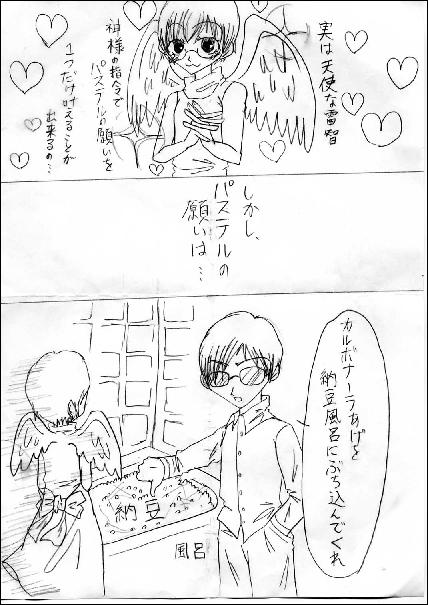 実は天使な雷智
神様の指令で
パステルの願いを
1つだけ叶えることが
出来るの…
しかし、
パステルの
願いは…
カルボナーラあげを
納豆風呂にぶち込んでくれ
納豆
風呂